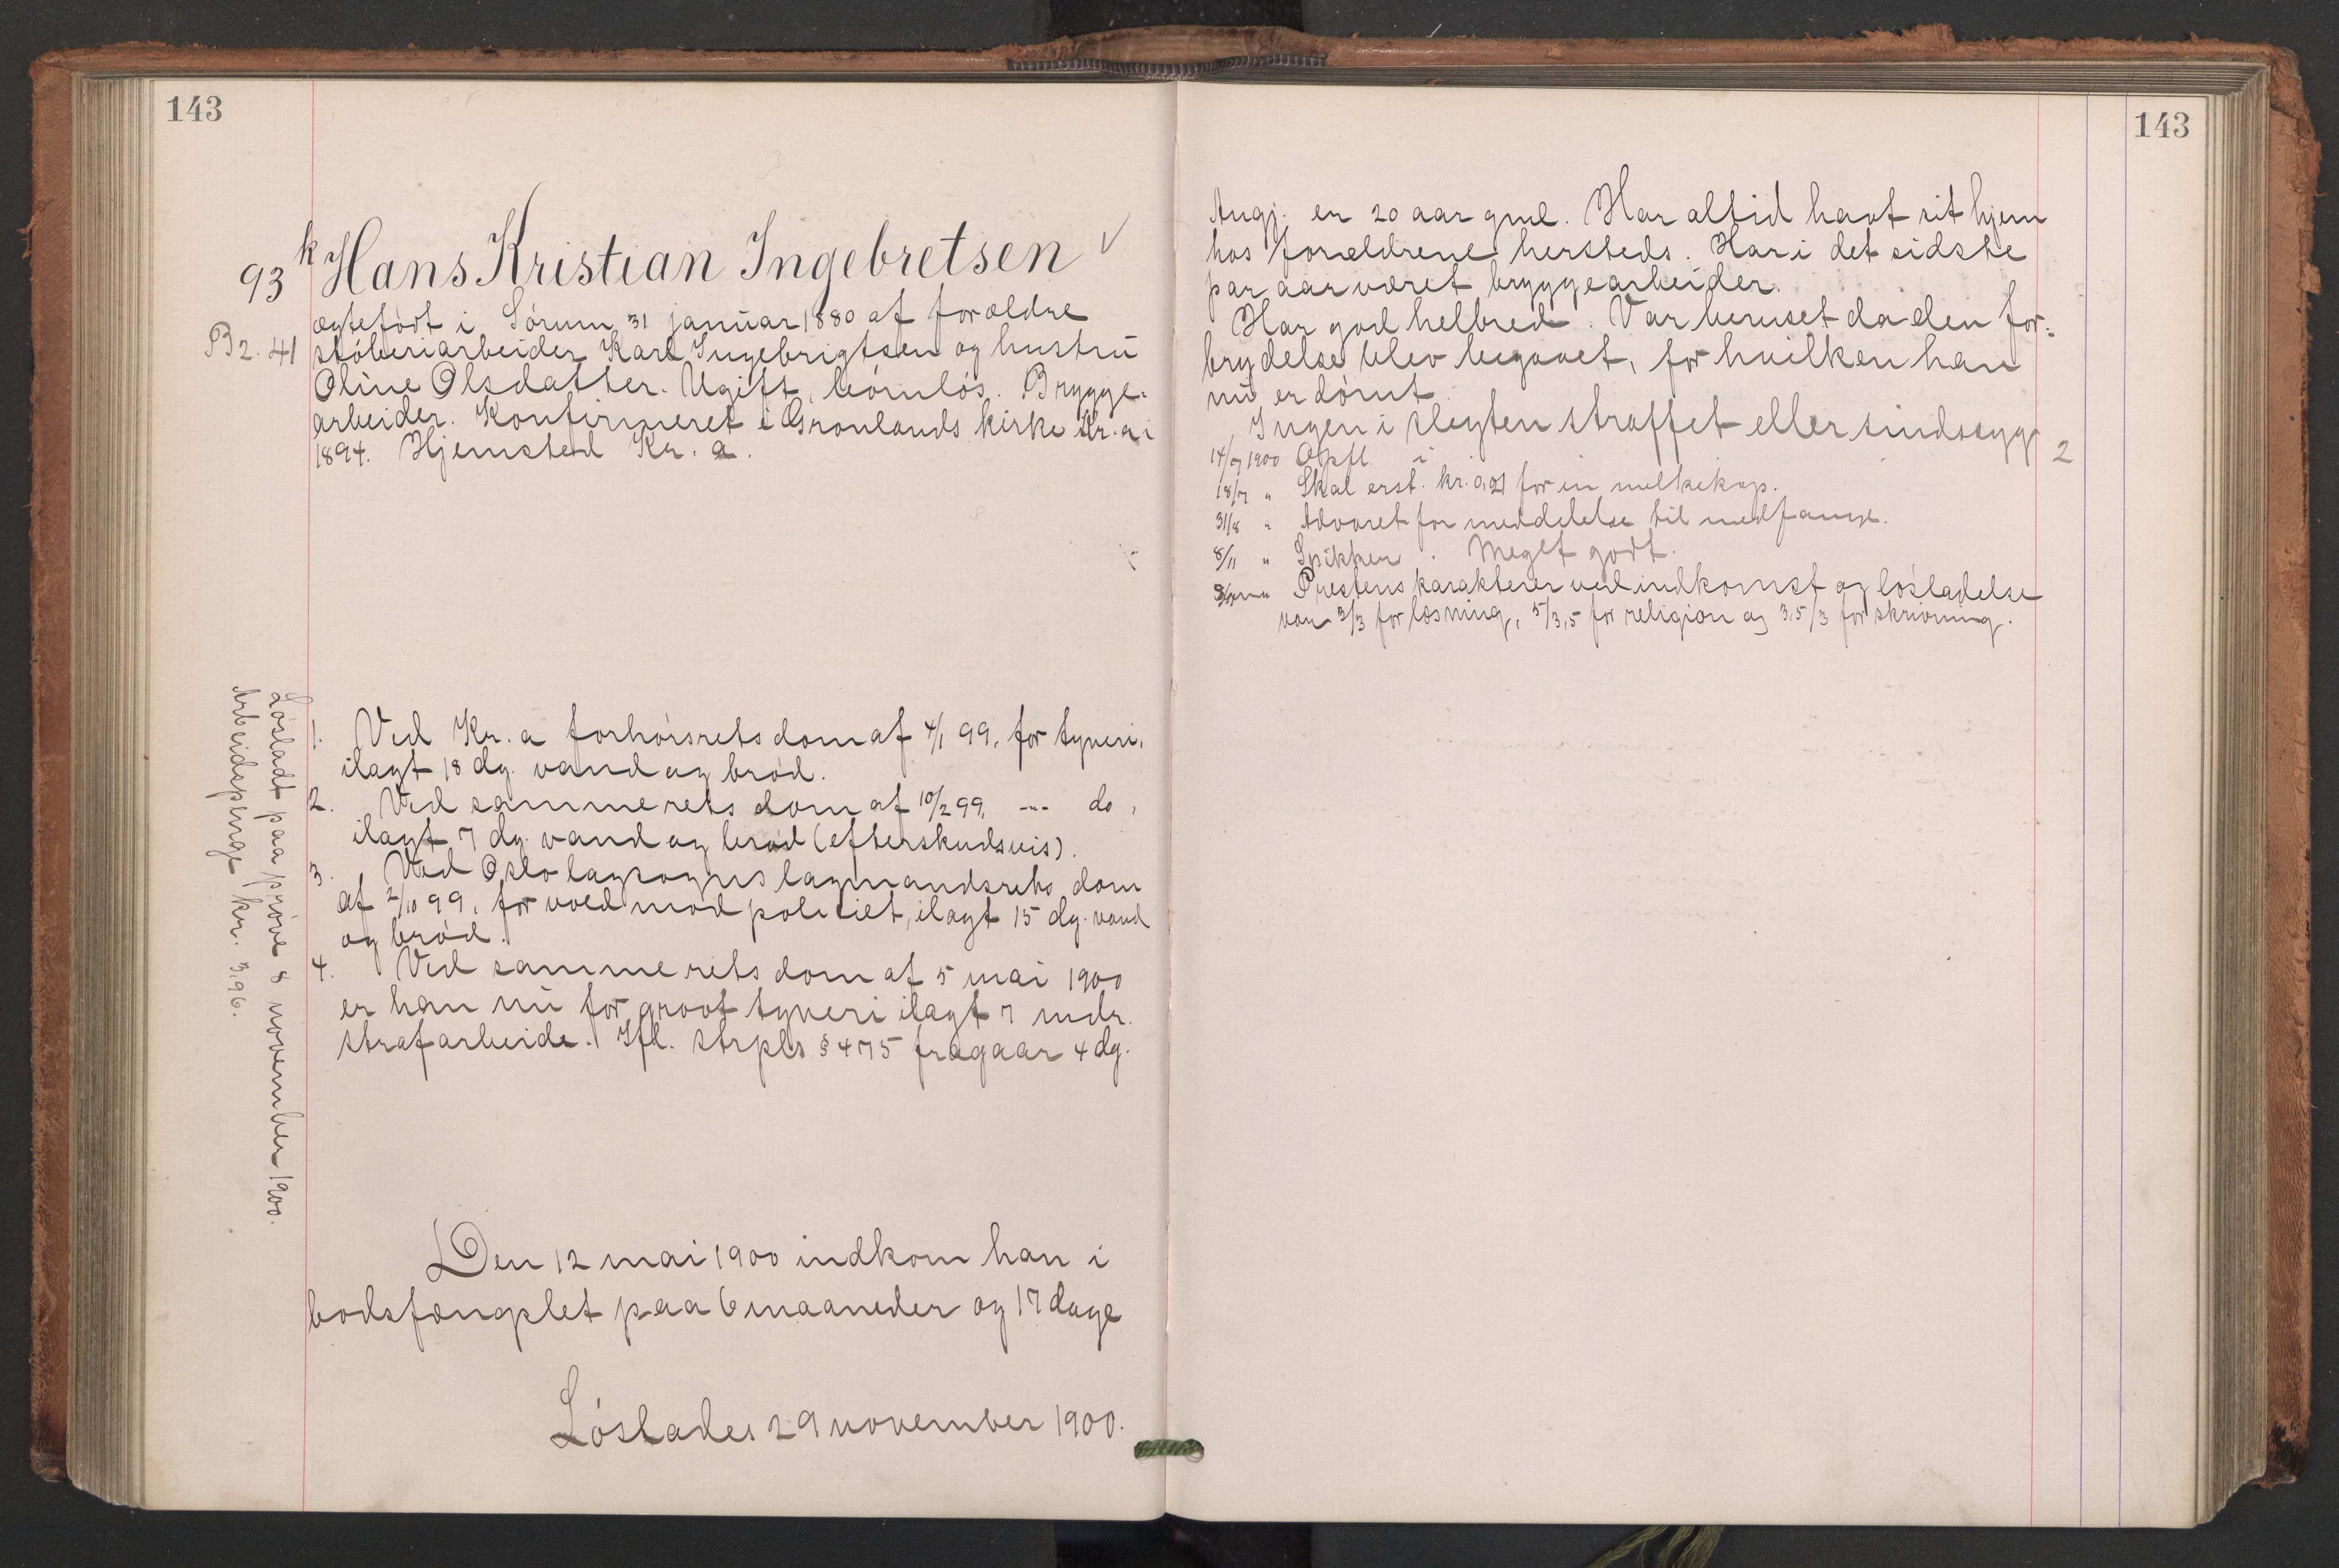 143
93 k Hans Kristian Ingebretsen ✓
ægtefødt i Sørum 31 januar 1880 af forældre
B 2. 41 støberiarbeider Karl Ingebrigtsen og hustru
Oline Olsdatter. Ugift, børnløs. Brygge-
arbeider. Konfirmeret i Grønlands kirke Kr.a i
1894. Hjemsted Kr.a.
1. Ved Kr.a forhørsrets dom af 4/1 99, for tyveri,
ilagt 18 dg. vand og brød.
2. Ved samme rets dom af 10/2 99, -"- do,
ilagt 7 dg. vand og brød (efterskudsvis).
3. Ved Oslo lagsogns lagmandsrets dom
af 2/10 99, for vold mod politiet, ilagt 15 dg. vand
og brød.
4. Ved samme rets dom af 5 mai 1900
er han nu for grovt tyveri ilagt 7 mdr.
strafarbeide. Ifl. strpls § 475 fragaar 4 dg.
Løsladt paa prøve 8 november 1900.
Arbeidspenge kr. 3,96.
Den 12 mai 1900 indkom han i
bodsfængslet paa 6 maaneder og 17 dage
Løslades 29 november 1900.
143
Angj. er 20 aar gml. Har altid havt sit hjem
hos forældrene hersteds. Har i det sidste
par aar været bryggearbeider.
Har god helbred. Var beruset da den for-
brydelse blev begaaet, for hvilken han
nu er dømt.
Ingen i slegten straffet eller sindssyg 2
14/7 1900 Opfl.
18/7 " Skal erst. kr. 0,21 for en melkekop.
31/8 " Advaret for meddelelse til medfange.
8/11 " Spikker. Meget godt.
" Prestens karakterer ved indkomst og løsladelse
var 3/3 for læsning, 5/3,5 for religion og 3,5/3 for skrivning.